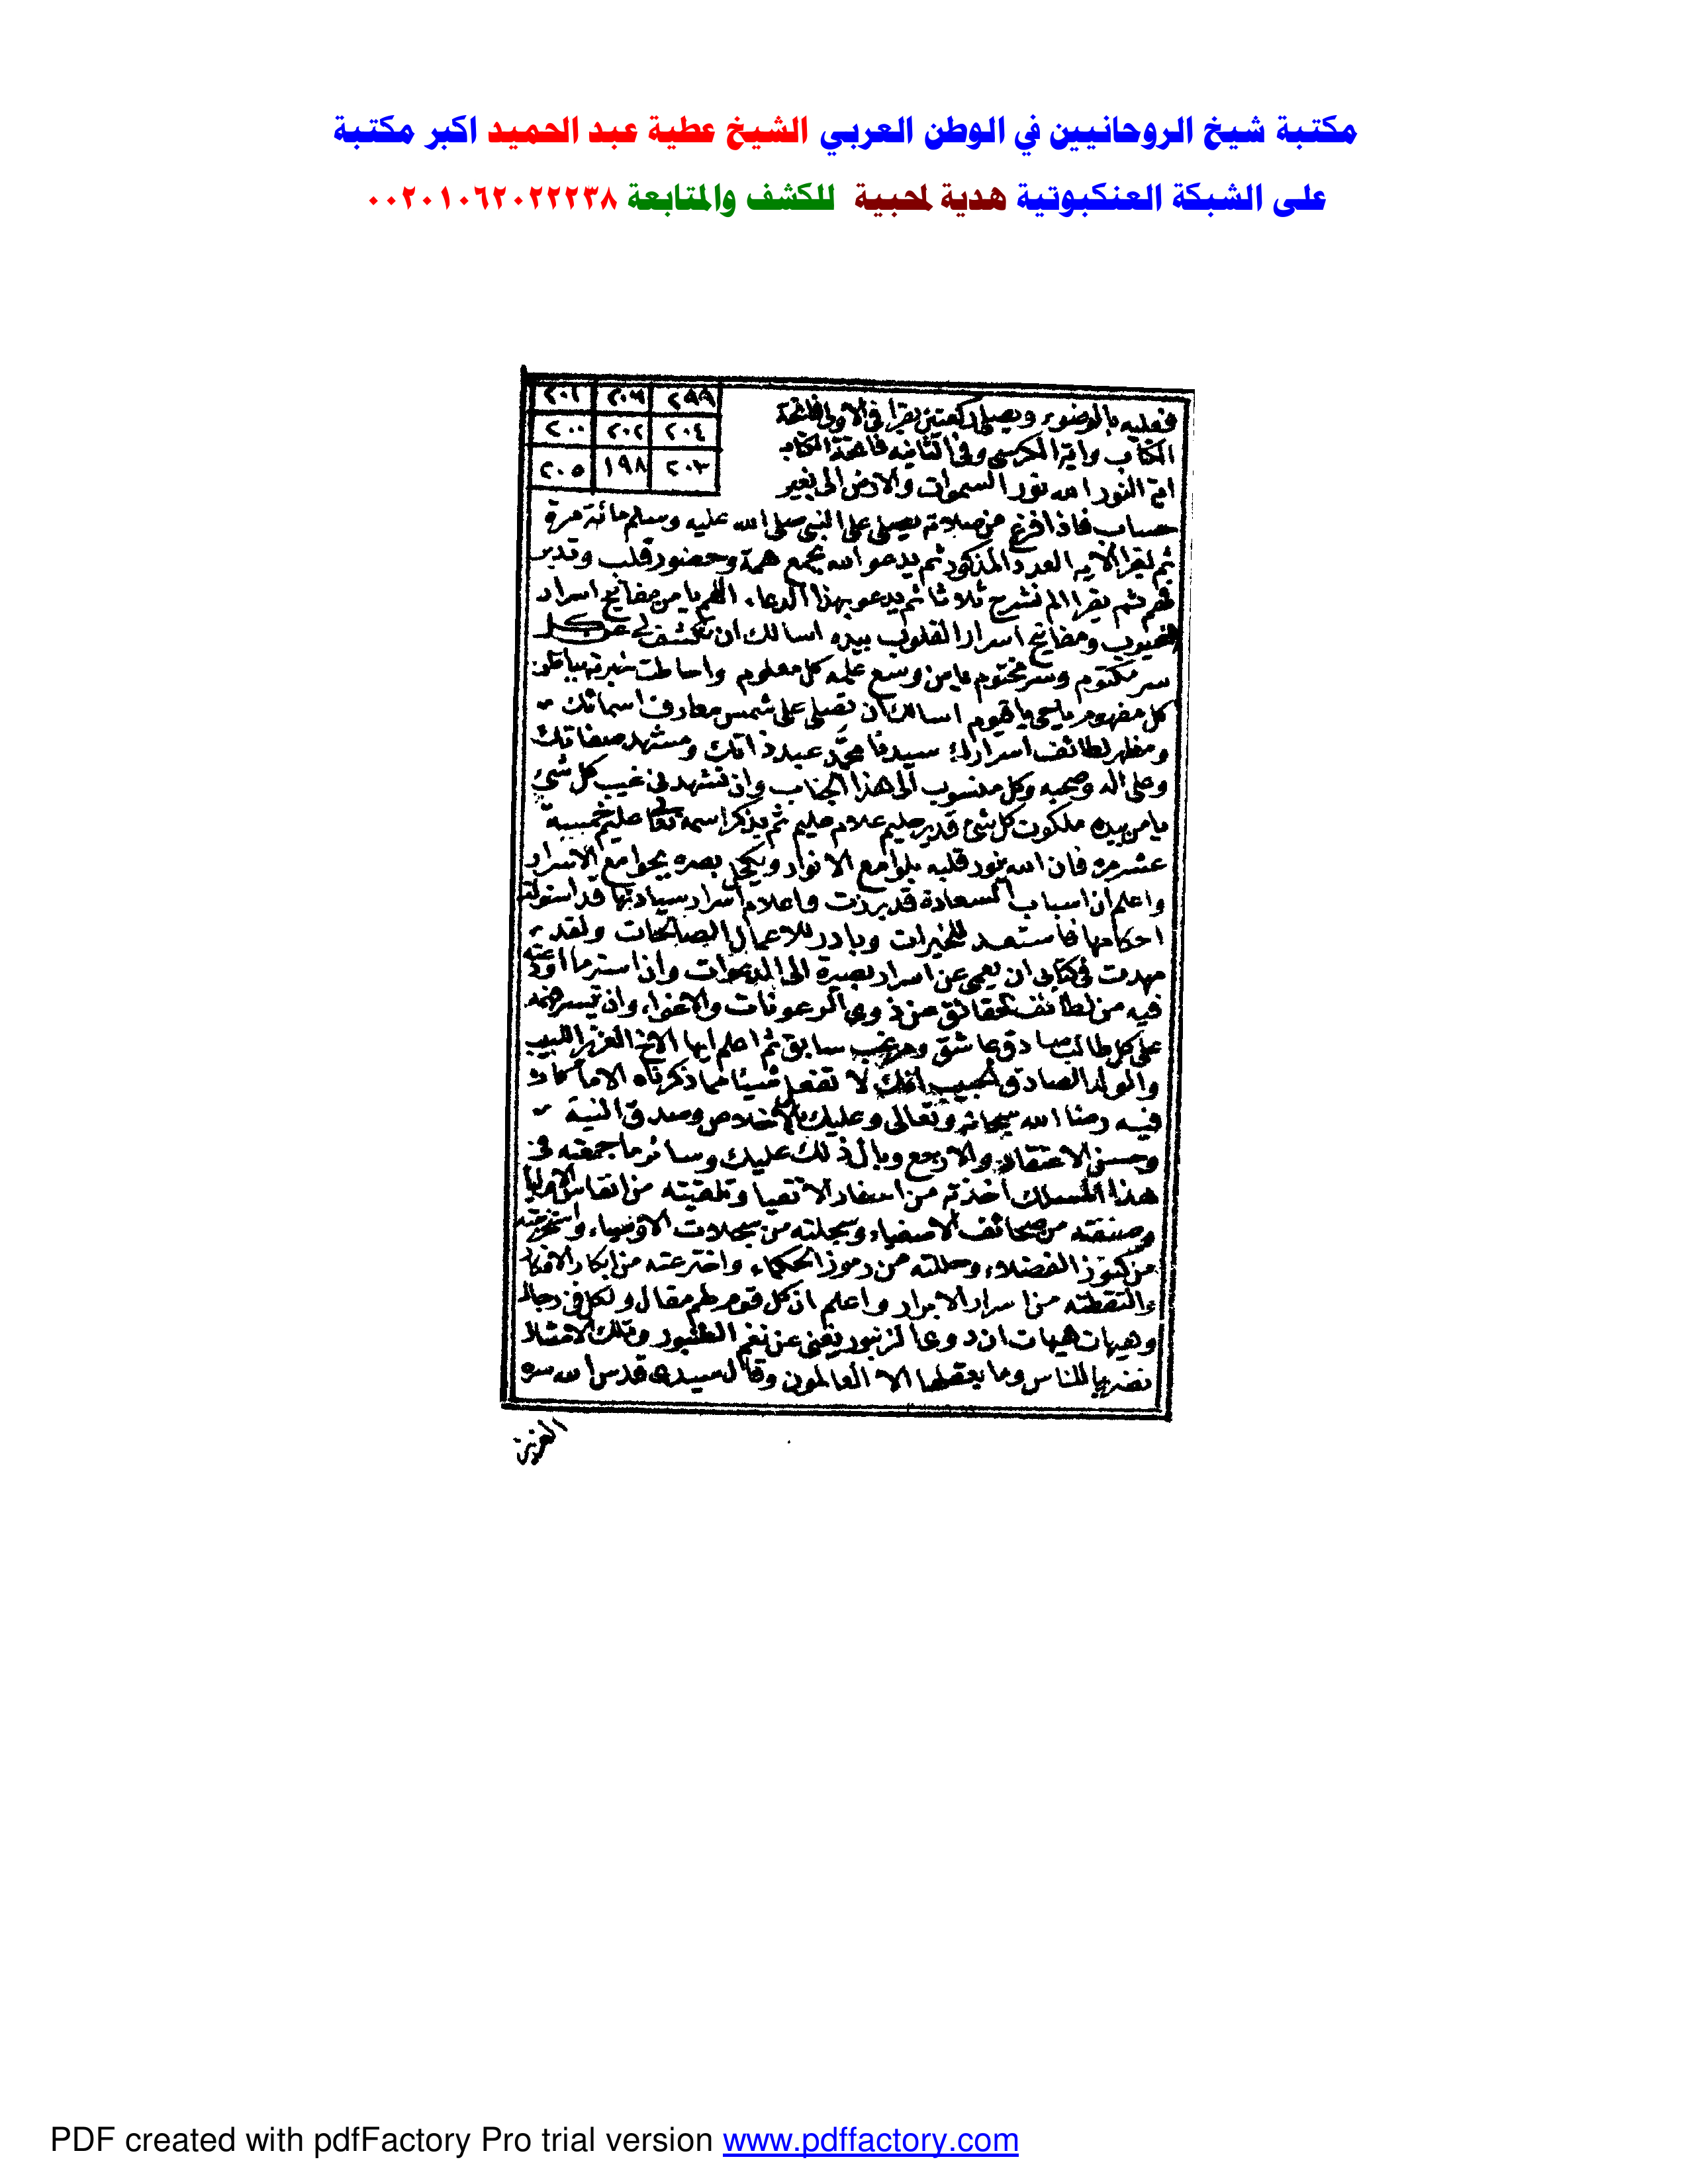 مكتبة شيخ الروحانيين في الوطن العربي الشيخ عطية عبد الحميد اكبر مكتبة
على الشبكة العنكبوتية هدية لمحبية للكشف والمتابعة ٠٠٢٠١٠٦٢٠٢٢٢٣٨
٢٩٩ ٢٠٦ ٢٠١
٢٠٤ ٢٠٢ ٢٠٠
٢٠٣ ١٩٨ ٢٠٥
فعليه بالوضوء ويصلى ركعتين يقرا فى الاولى فاتحة
الكتاب واية الكرسى وفى الثانيه فاتحة الكتاب
اية النور الله نور السموات والارض الى بغير
حساب فاذا فرغ من صلاته يصلى على النبى صلى الله عليه وسلم مائة مرة
ثم ليقرا الايه العدد المذكور ثم يدعو الله بجمع همة وحضور قلب وتدبر
ثم يقرا الم نشرح ثلاثا ثم يدعو بهذا الدعاء اللهم يا من مفاتيح اسرار
الغيوب ومفاتيح اسرار القلوب بيده اسالك ان تكشف لى عن كل
سر مكتوم وسر مختوم يا من وسع علمه كل معلوم واحاطت خبرته بباطن
كل مفهوم يا حى يا قيوم اسالك ان تصلى على شمس معارف اسمائك
ومظهر لطائف اسرارك سيدنا محمد عبد ذاتك ومشهد صفاتك
وعلى اله وصحبه وكل منسوب الى هذا الجناب وان تشهدنى غيب كل شئ
يا من بيده ملكوت كل شئ قدير حليم علام عليم ثم يذكر اسمه تعالى عليم خمسة
عشر مرة فان الله ينور قلبه بلوامع الانوار ويكحل بصره بجوامع الاسرار
واعلم ان اسباب السعادة قد برزت واعلام اسرار سيادتها قد استولت
احكامها فاستعد للخيرات وبادر للاعمال الصالحات ولقد
مهدت فى كتابى ان يعمى عن اسرار بصيرة الى المدعوات وان استر ما اودعته
فيه من لطائف الحقائق عن ذوى الرعونات والاغواء وان تيسر فهمه
على كل طالب صادق عاشق ومرغب سابق ثم اعلم ايها الاخ العزيز اللبيب
والولد الصادق الحبيب انك لا تفعل شيئا مما ذكرناه الا ما كان
فيه رضا الله سبحانه وتعالى وعليك بالاخلاص وصدق النية
وحسن الاعتقاد والا رجع وبال ذلك عليك وسائر ما جمعته فى
هذا المسلك اخذته من اسفار الاتقيا وتلقيته من انفاس الاوليا
وصنفته من صحائف الاصفياء وسجلته من سجلات الاوصياء واستخرجته
من كنوز الفضلاء وحللته من رموز الحكماء واخترعته من ابكار الافكار
والتقطته من اسرار الابرار واعلم ان كل قوم لهم مقال ولكل فن رجال
وهيهات هيهات ان دوى الزنبور يغنى عن نغم الطنبور وتلك الامثال
نضربها للناس وما يعقلها الا العالمون وقال سيدى قدس الله سره
العزيز
PDF created with pdfFactory Pro trial version www.pdffactory.com